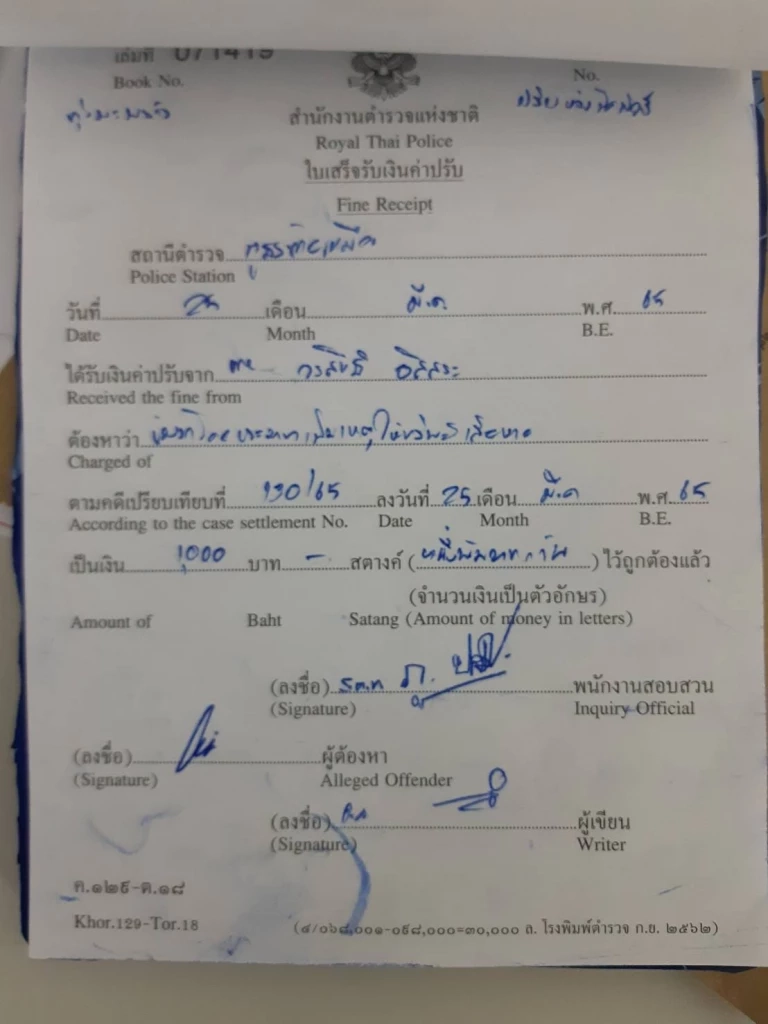 เล่มที่ 071419
Book No. No.
สำนักงานตำรวจแห่งชาติ
Royal Thai Police
ใบเสร็จรับเงินค่าปรับ
Fine Receipt
สถานีตำรวจ
Police Station
วันที่ 25 เดือน มี.ค. พ.ศ. 65
Date Month B.E.
ได้รับเงินค่าปรับจาก
Received the fine from
ต้องหาว่า ขับรถโดยประมาทเป็นเหตุให้ทรัพย์สินเสียหาย
Charged of
ตามคดีเปรียบเทียบที่ 190/65 ลงวันที่ 25 เดือน มี.ค พ.ศ. 65
According to the case settlement No. Date Month B.E.
เป็นเงิน 1,000 บาท - สตางค์ (หนึ่งพันบาทถ้วน) ไว้ถูกต้องแล้ว
(จำนวนเงินเป็นตัวอักษร)
Amount of Baht Satang (Amount of money in letters)
(ลงชื่อ) พนักงานสอบสวน
(Signature) Inquiry Official
(ลงชื่อ) ผู้ต้องหา
(Signature) Alleged Offender
(ลงชื่อ) ผู้เขียน
(Signature) Writer
ค.๑๒๙-ต.๑๘
Khor.129-Tor.18 (๔/๐๖๘,๐๐๑-๐๙๘,๐๐๐=๓๐,๐๐๐ ล. โรงพิมพ์ตำรวจ ก.ย. ๒๕๖๒)